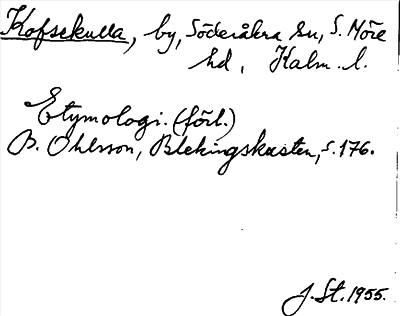 Kofsekulla, by, Söderåkra sn, S. Möre
hd, Kalm. l.
Etymologi. (förl.)
B. Ohlsson, Blekingskusten, s. 176.
J. St. 1955.